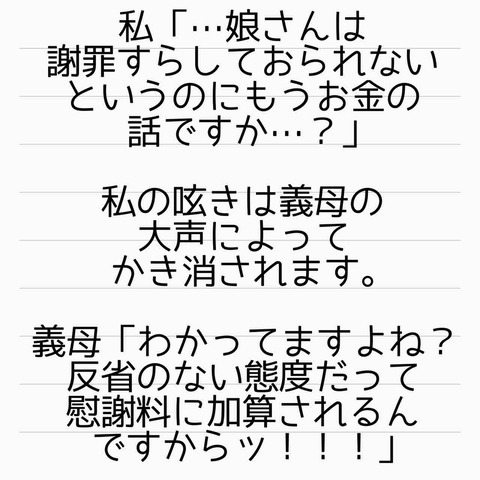 私「…娘さんは
謝罪すらしておられない
というのにもうお金の
話ですか…？」
私の呟きは義母の
大声によって
かき消されます。
義母「わかってますよね？
反省のない態度だって
慰謝料に加算されるん
ですからッ！！！」